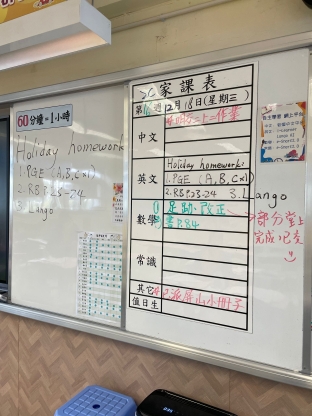 60分鐘=1小時
Holiday homework:
1.PGE (A,B,C×1)
2.RB P.23-24
3. Lango
家課表
12月18日(星期三)
中文
英文
Holiday homework:
1.PGE (A,B,C×1)
2.RB P.23-24 3.Lango
數學
改正
書P.84
部分堂上
完成已交
常識
其它
已派屏山小冊子
值日生